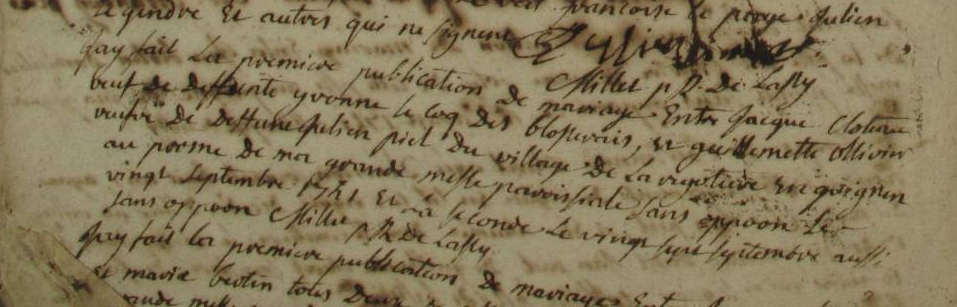 le gendre Et autres qui ne signent
francoise le porge Julien
Millet p R. De Lassy
Jay fait La premiere publication de mariage Entre Jacque Cloteau
veuf de deffunte yvonne le coq des blosserais, Et guillemette Ollivier
veufve de deffunt Julien piel du village de La rigotiere En guignen
au porsme de ma grande messe paroissiale sans oppoon Le
vingt septembre 1751 Et La seconde Le vingt sept septembre aussi
sans oppoon Millet p R De Lassy
Jay fait La premiere publication de mariage Entre
Et marie bertin tous deux de